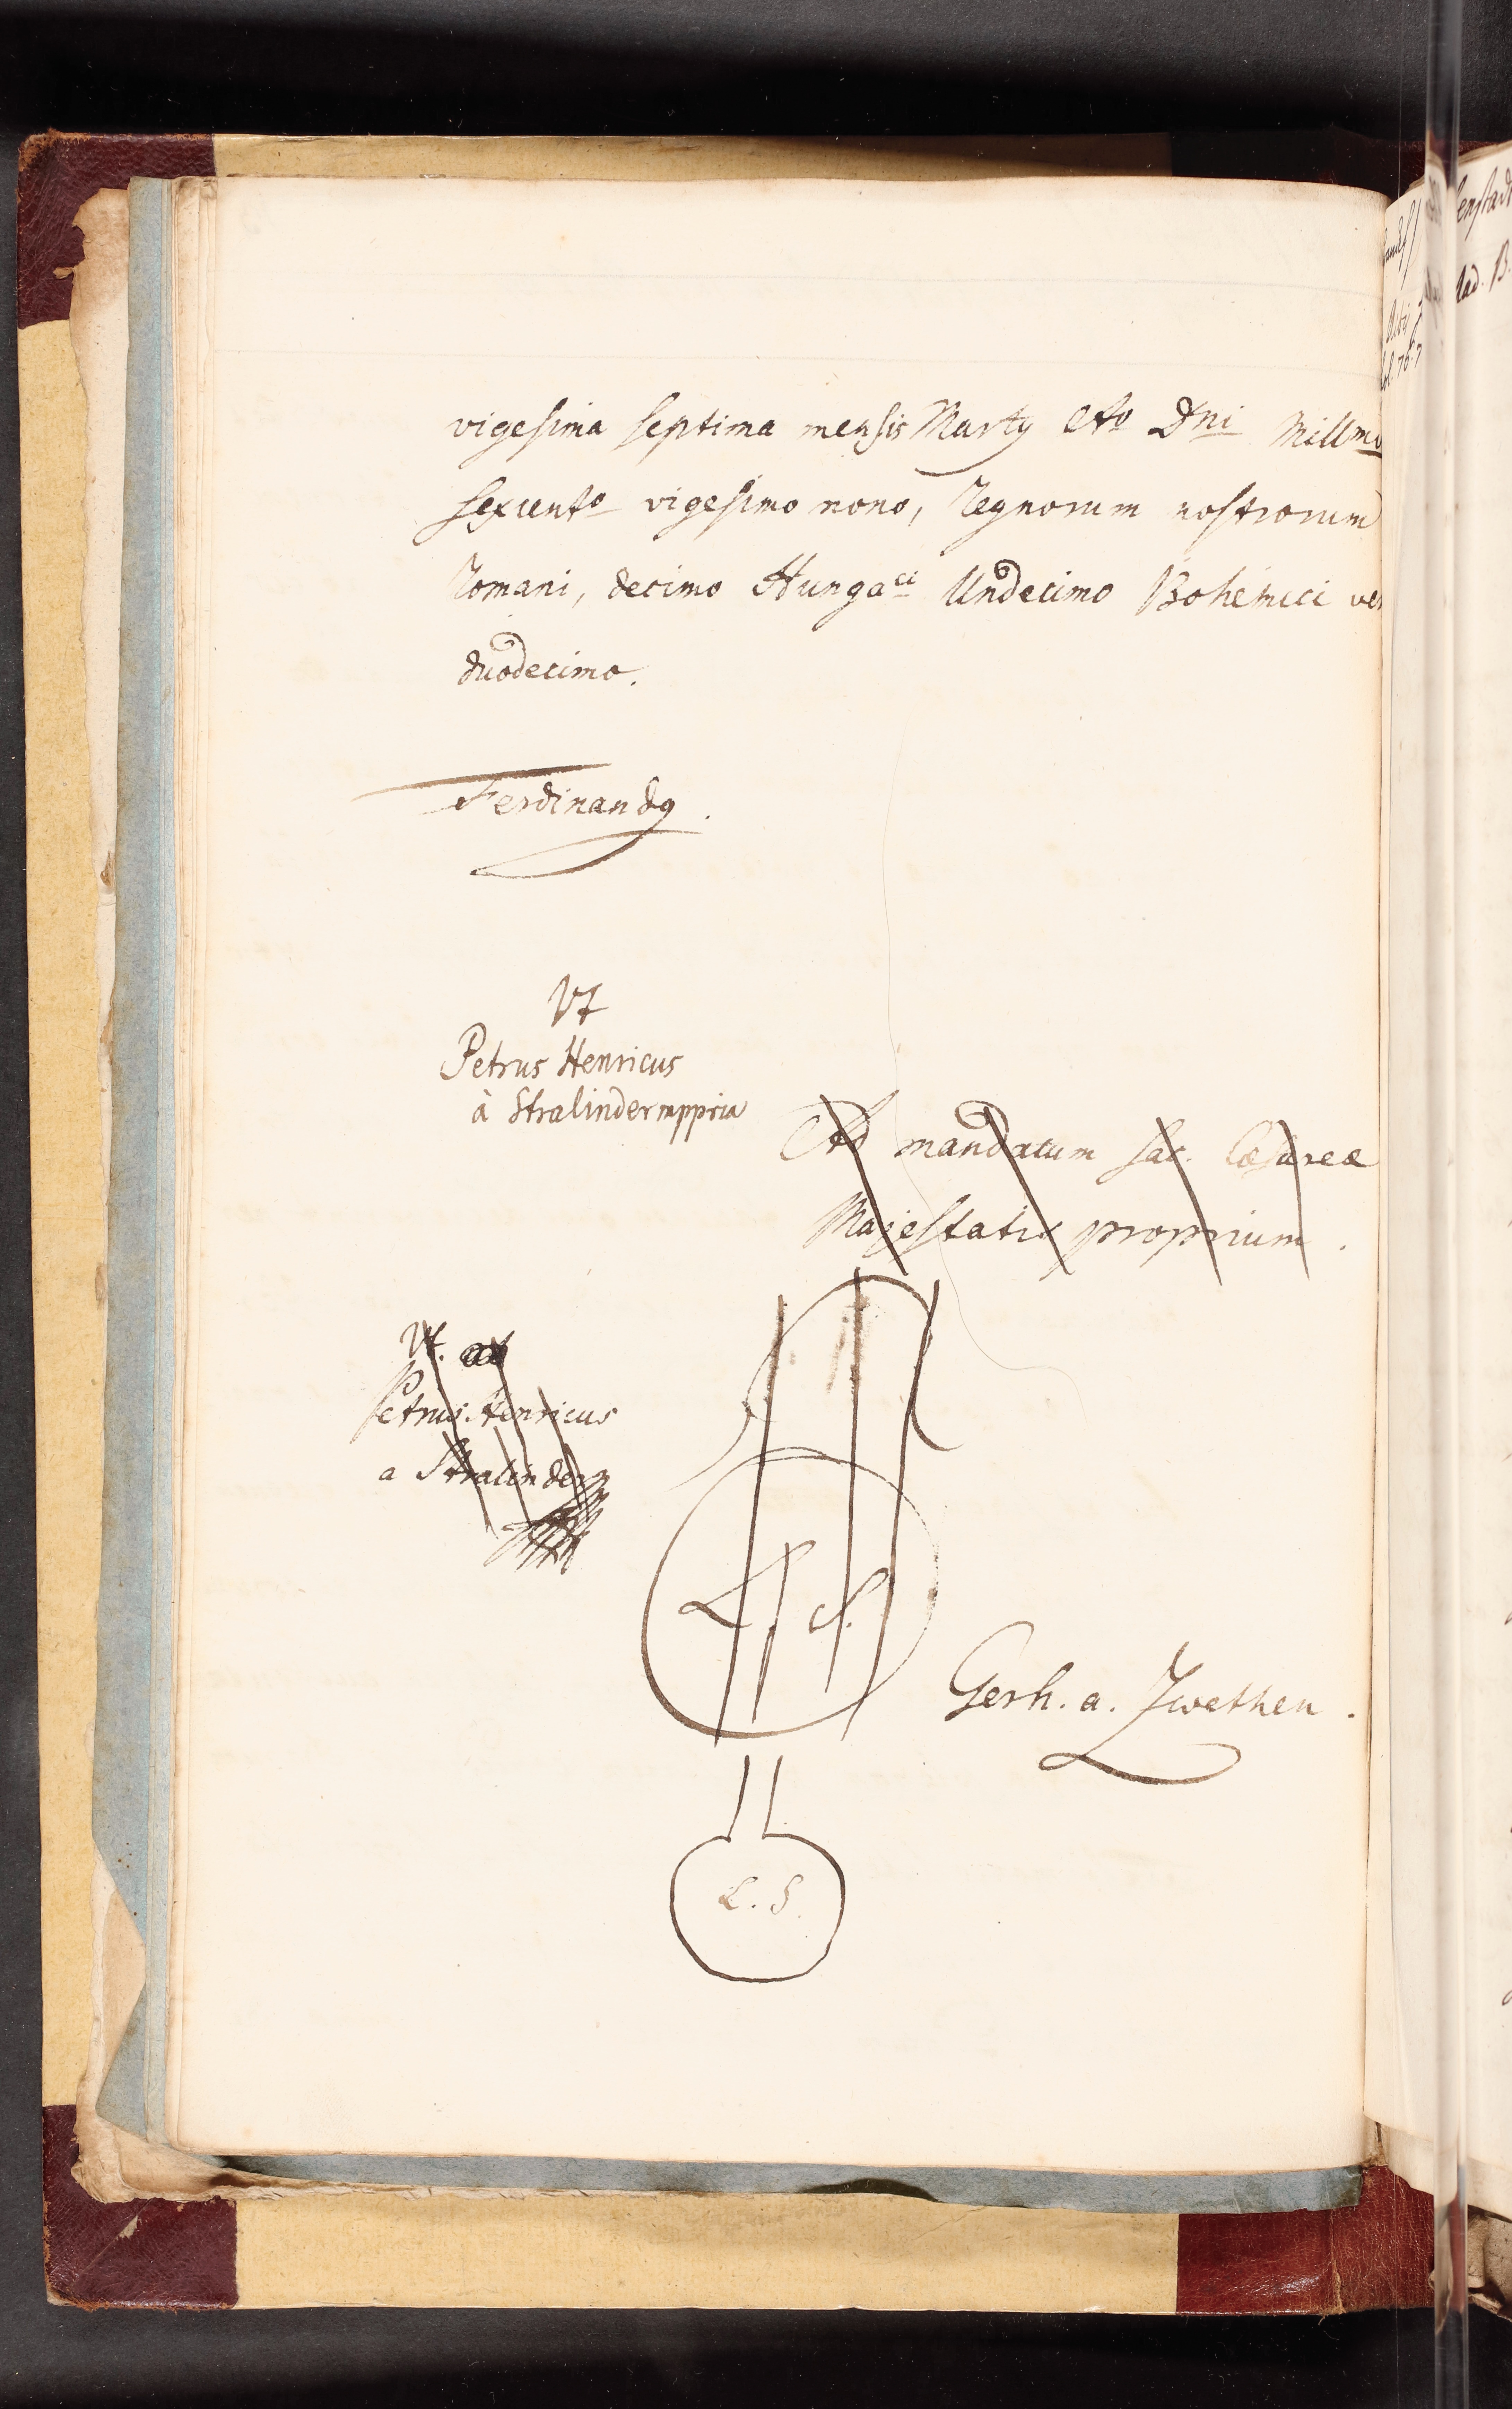 vigesima septima mensis Martij Ao Dni Millmo
sexcento vigesimo nono, Regnorum nostrorum
Romani, decimo Hungaci Undecimo Bohemici
duodecimo.
Ferdinandq.
Vt
Petrus Henricus
à Stralinder mppria
Ad mandatum sac. Cæsareæ
Majestatis proprium.
Vt.
Petrus Henricus
a Stralinder
L. S.
Gerh. a. Zwethen.
L. S.